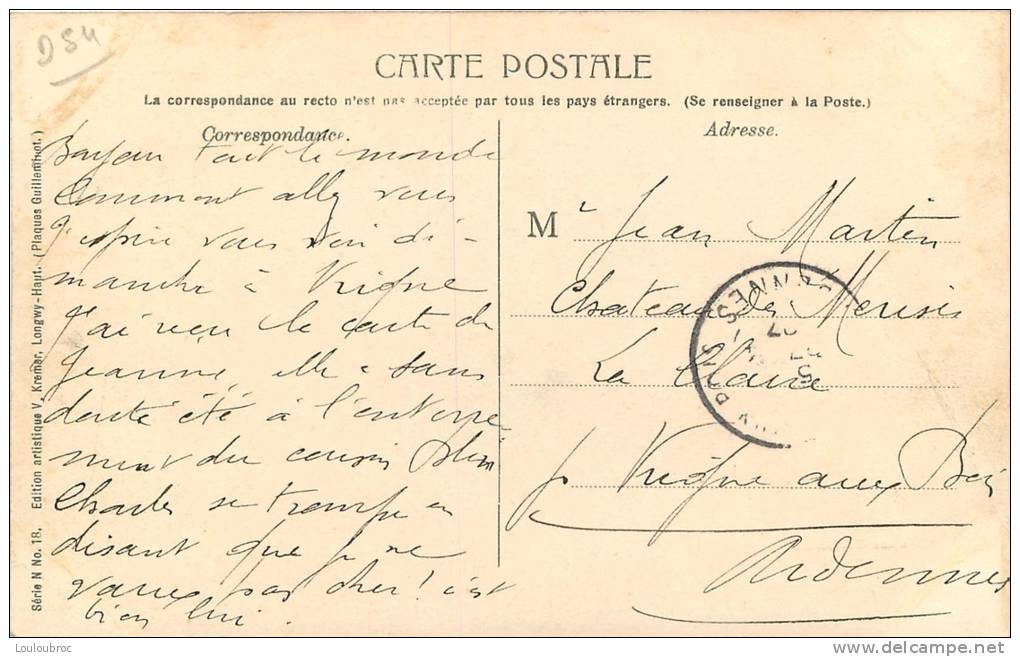 D54
CARTE POSTALE
La correspondance au recto n'est pas acceptée par tous les pays étrangers. (Se renseigner à la Poste.)
Correspondance.
Adresse.
Bonjour tout le monde
Comment allez vous
J'espère vous voir di-
manche à Vrigne
J'ai reçu la carte de
Jeanne, elle a sans
doute été à l'enterre
ment du cousin
Charles se trompe en
disant que je ne
vaux pas cher! c'est
bien lui.
Mr Jean Martin
Chateau des Merisiers
La Claire
p Vrigne aux Bois
Ardennes
ARDENNES
Série N No. 18. Edition artistique V. Kremer, Longwy-Haut. (Plaques Guilleminot.)
Louloubroc
delcampe.net